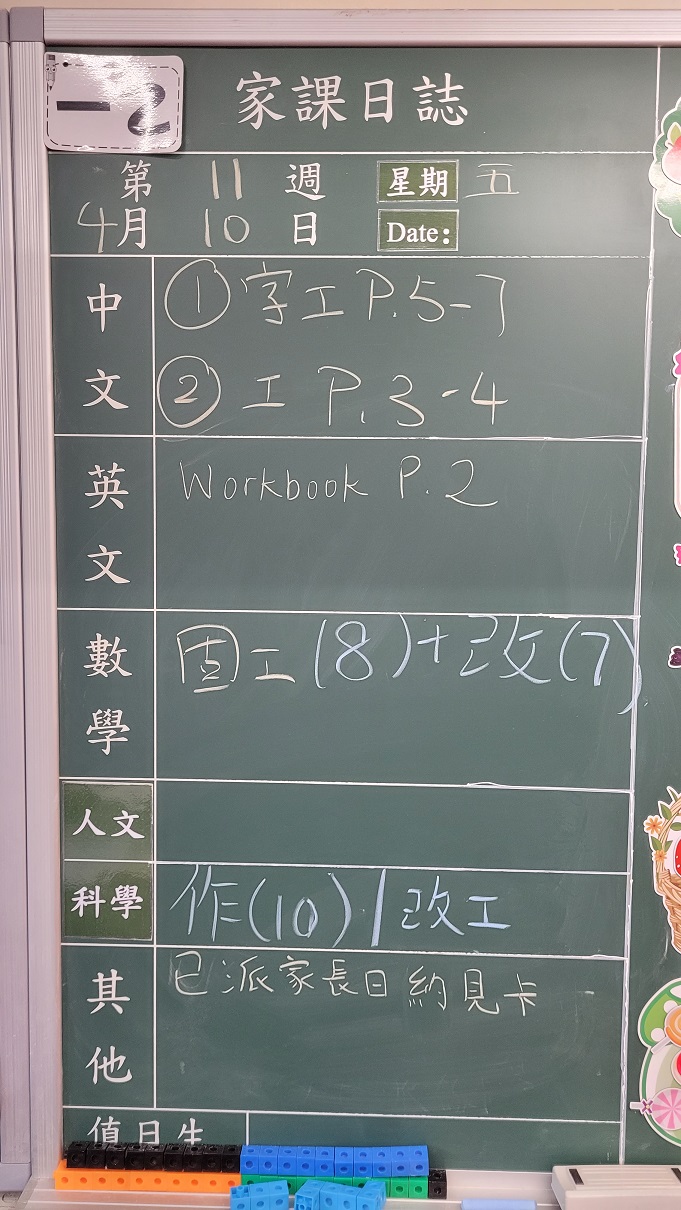 一2
家課日誌
第 11 週 星期 五
4月 10 日 Date:
中文
① 字工 P.5-7
② 工 P.3-4
英文
Workbook P.2
數學
固工(8)+改(7)
人文
科學
作(10)/改工
其他
已派家長日約見卡
值日生